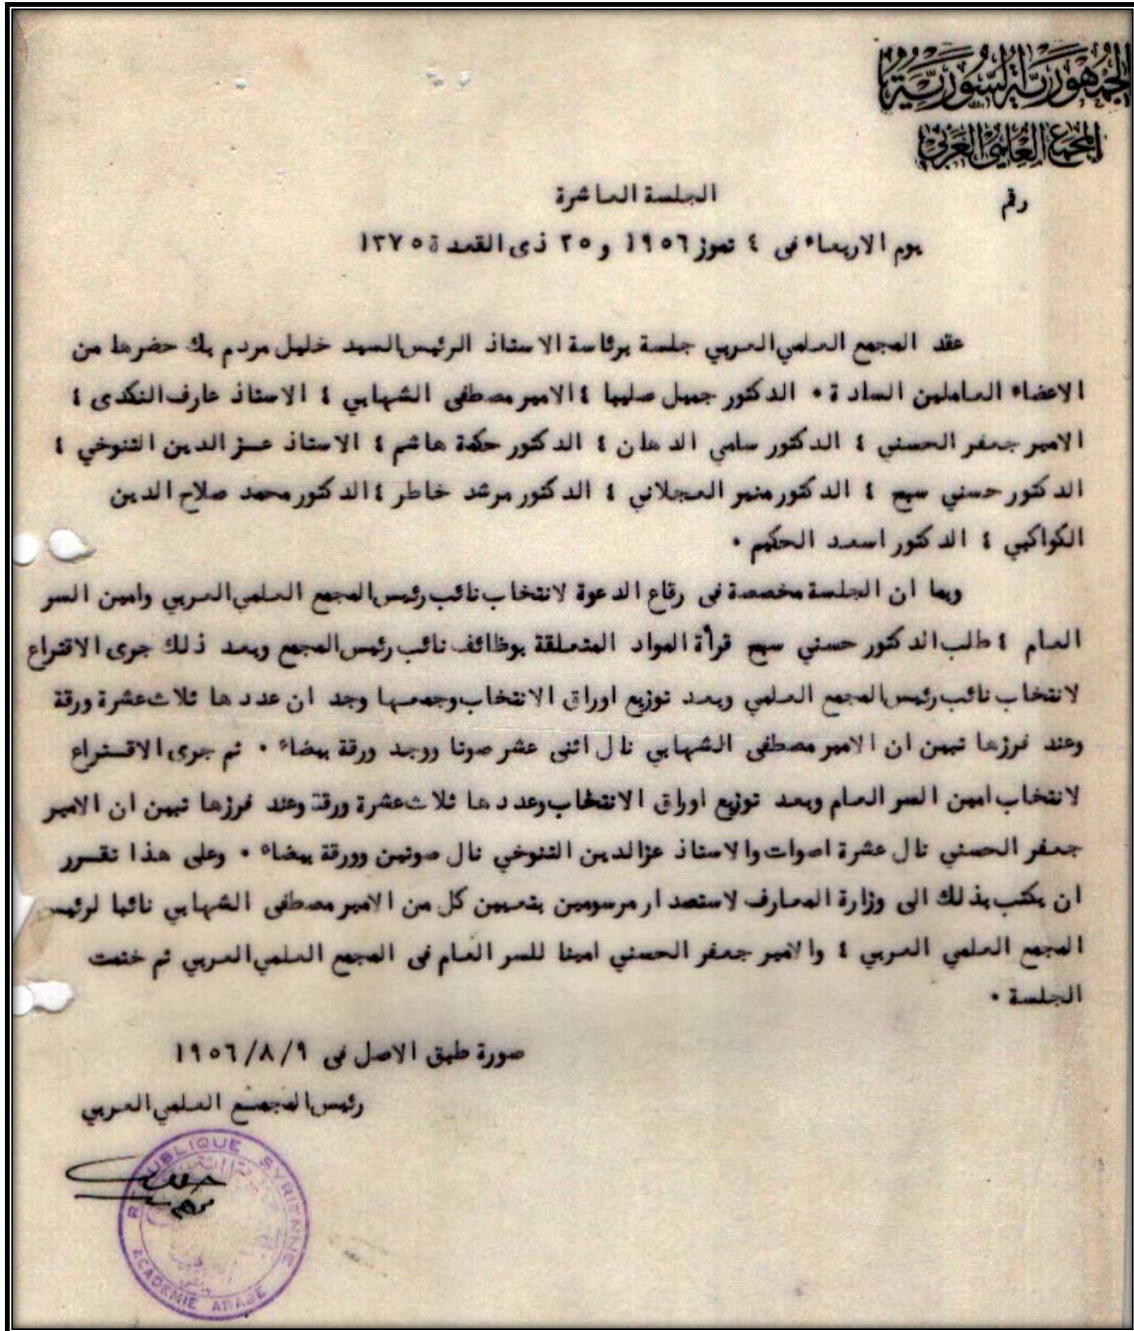 الجمهورية السورية
المجمع العلمي العربي
رقم
الجلسة العاشرة
يوم الاربعاء فى ٤ تموز ١٩٥٦ و ٢٥ ذى القعدة ١٣٧٥
عقد المجمع العلمي العربي جلسة برئاسة الاستاذ الرئيس السيد خليل مردم بك حضرها من
الاعضاء العاملين السادة ٠ الدكتور جميل صليبا ٤ الامير مصطفى الشهابي ٤ الاستاذ عارف النكدى ٤
الامير جعفر الحسني ٤ الدكتور سامي الدهان ٤ الدكتور حكمة هاشم ٤ الاستاذ عز الدين التنوخي ٤
الدكتور حسني سبح ٤ الدكتور منير العجلاني ٤ الدكتور مرشد خاطر ٤ الدكتور محمد صلاح الدين
الكواكبي ٤ الدكتور اسعد الحكيم ٠
وبما ان الجلسة مخصصة فى رقاع الدعوة لانتخاب نائب رئيس المجمع العلمي العربي وامين السر
العام ٤ طلب الدكتور حسني سبح قرأة المواد المتعلقة بوظائف نائب رئيس المجمع وبعد ذلك جرى الاقتراع
لانتخاب نائب رئيس المجمع العلمي وبعد توزيع اوراق الانتخاب وجمعها وجد ان عددها ثلاث عشرة ورقة
وعند فرزها تبين ان الامير مصطفى الشهابي نال اثنى عشر صوتا ووجد ورقة بيضاء ٠ ثم جرى الاقتراع
لانتخاب امين السر العام وبعد توزيع اوراق الانتخاب وعددها ثلاث عشرة ورقة وعند فرزها تبين ان الامير
جعفر الحسني نال عشرة اصوات والاستاذ عزالدين التنوخي نال صوتين وورقة بيضاء ٠ وعلى هذا تقرر
ان يكتب بذلك الى وزارة المعارف لاستصدار مرسومين بتعيين كل من الامير مصطفى الشهابي نائبا لرئيس
المجمع العلمي العربي ٤ والامير جعفر الحسني امينا للسر العام فى المجمع العلمي العربي ثم ختمت
الجلسة ٠
صورة طبق الاصل فى ١٩٥٦/٨/٩
رئيس المجمع العلمي العربي
REPUBLIQUE SYRIENNE
ACADEMIE ARABE